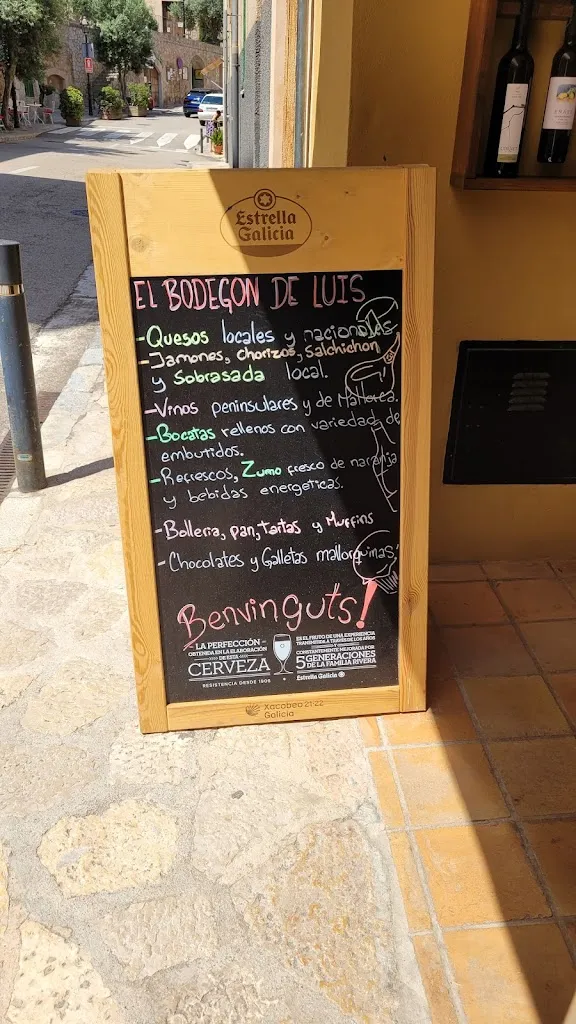 Estrella
Galicia
EL BODEGON DE LUIS
-Quesos locales y nacionales.
-Jamones, chorizos, Salchichon
y Sobrasada local.
-Vinos peninsulares y de Mallorca.
-Bocatas rellenos con variedad de
embutidos.
-Refrescos, Zumo fresco de naranja
y bebidas energeticas.
-Bolleria, pan, tartas y Muffins
-Chocolates y Galletas mallorquinas,
Benvinguts!
LA PERFECCIÓN
OBTENIDA EN LA ELABORACIÓN
DE ESTA
CERVEZA
RESISTENCIA DESDE 1906
ES EL FRUTO DE UNA EXPERIENCIA
TRANSMITIDA A TRAVÉS DE LOS AÑOS
CONSTANTEMENTE MEJORADA POR
5 GENERACIONES
DE LA FAMILIA RIVERA
Estrella Galicia
Xacobeo 21·22
Galicia